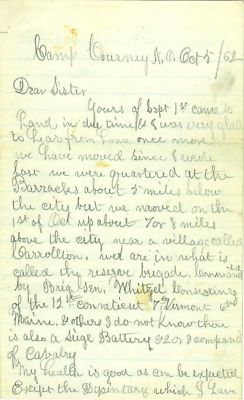 Camp Kearney N.O. Oct 5/62
Dear Sister
Yours of Sept 1st came to
hand in due time & I was very glad
to hear from home once more
we have moved since I wrote
last we were quartered at the
Barracks about 5 miles below
the city but we moved on the
1st of Oct up about 7 or 8 miles
above the city near a village called
Carrollton. we are in what is
called the reserve brigade. Commanded
by Brig Gen. Whitzel consisting
of the 12th Conneticut 7 Virmont
Maine. & others I do not know there
is also a Siege Battery & 2 or 3 company
of Cavalry
My health is good as can be expected
Except the Dysintary which I have